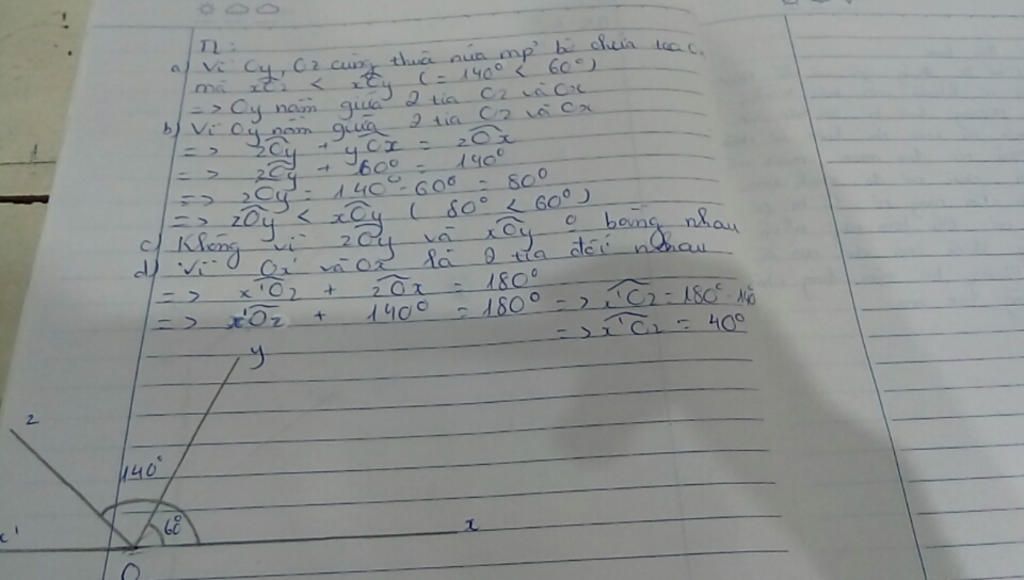 a) Vì Oy, Oz cùng thuộc nửa mp' bờ chứa tia
mà xOz < xOy (= 140° < 60°)
=> Oy nằm giữa 2 tia Oz và Ox
b) Vì Oy nằm giữa 2 tia Oz và Ox
=> zOy + yOx = zOx
=> zOy + 60° = 140°
=> zOy = 140° - 60° = 80°
=> zOy < xOy ( 80° < 60° )
c) Không vì zOy và xOy o bằng nhau
d) Vì Ox' và Ox là 2 tia đối nhau
=> x'Oz + zOx = 180°
=> x'Oz + 140° = 180° => x'Oz = 180° - 140°
=> x'Oz = 40°
y
z
140°
60°
x
x'
O